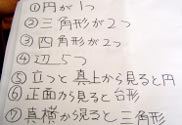 ①円が1つ
②三角形が2つ
③四角形が2つ
④辺 5つ
⑤立つと真上から見ると円
⑥正面から見ると台形
⑦真横から見ると三角形